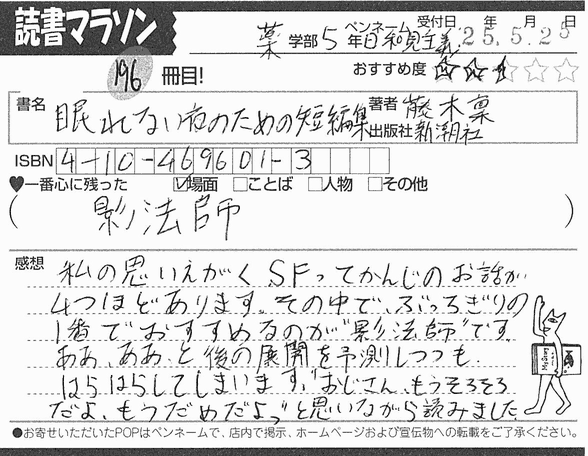 読書マラソン
薬 学部 5 年 ペンネーム 日和見主義 受付日 25年 5月 25日
196 冊目!
おすすめ度 ☆☆☆☆☆
書名 眠れない夜のための短編集 著者 藤木稟
出版社 新潮社
ISBN 4-10-469601-3
♥一番心に残った ☑場面 □ことば □人物 □その他
( 影法師 )
感想 私の思いえがくSFってかんじのお話が
4つほどあります。その中で、ぶっちぎりの
1番でおすすめるのが"影法師"です。
ああ、ああ、と後の展開を予測しつつも、
はらはらしてしまいます。"おじさん、もうそろそろ
だよ、もうだめだよっ"と思いながら読みました。
●お寄せいただいたPOPはペンネームで、店内で掲示、ホームページおよび宣伝物への転載をご了承ください。